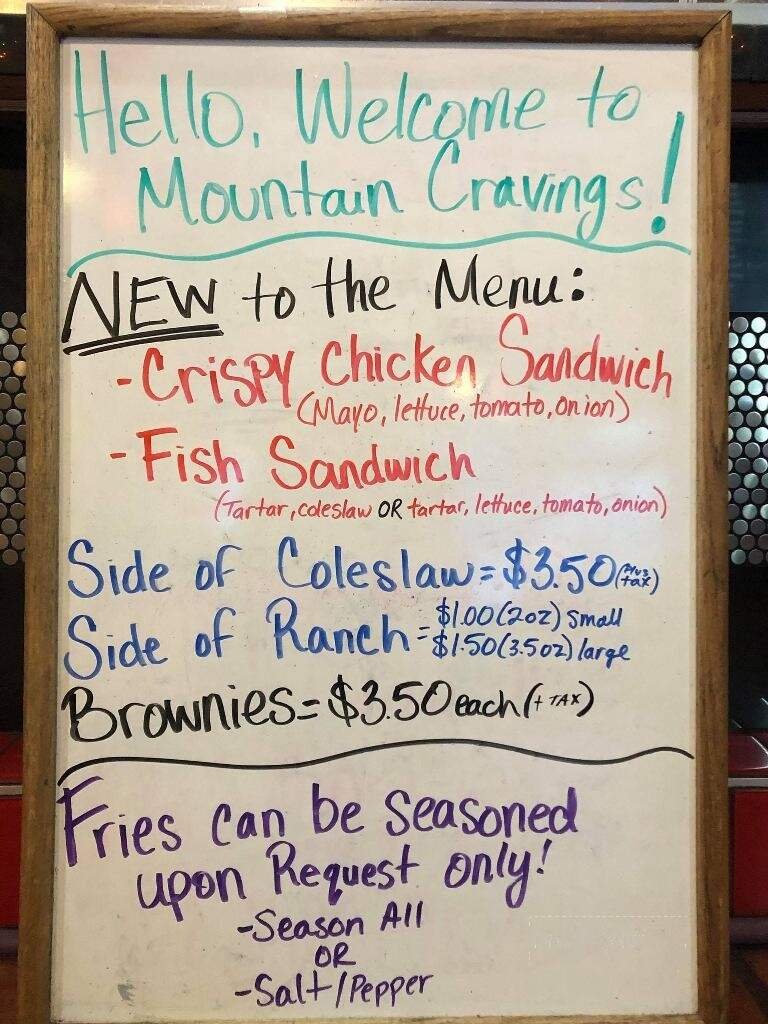 Hello, Welcome to
Mountain Cravings!
NEW to the Menu:
- Crispy Chicken Sandwich
(Mayo, lettuce, tomato, onion)
- Fish Sandwich
(Tartar, coleslaw OR tartar, lettuce, tomato, onion)
Side of Coleslaw = $3.50 (Plus tax)
Side of Ranch = $1.00 (2oz) small
$1.50 (3.5oz) large
Brownies = $3.50 each (+ TAX)
Fries can be seasoned
upon Request only!
- Season All
OR
- Salt/Pepper